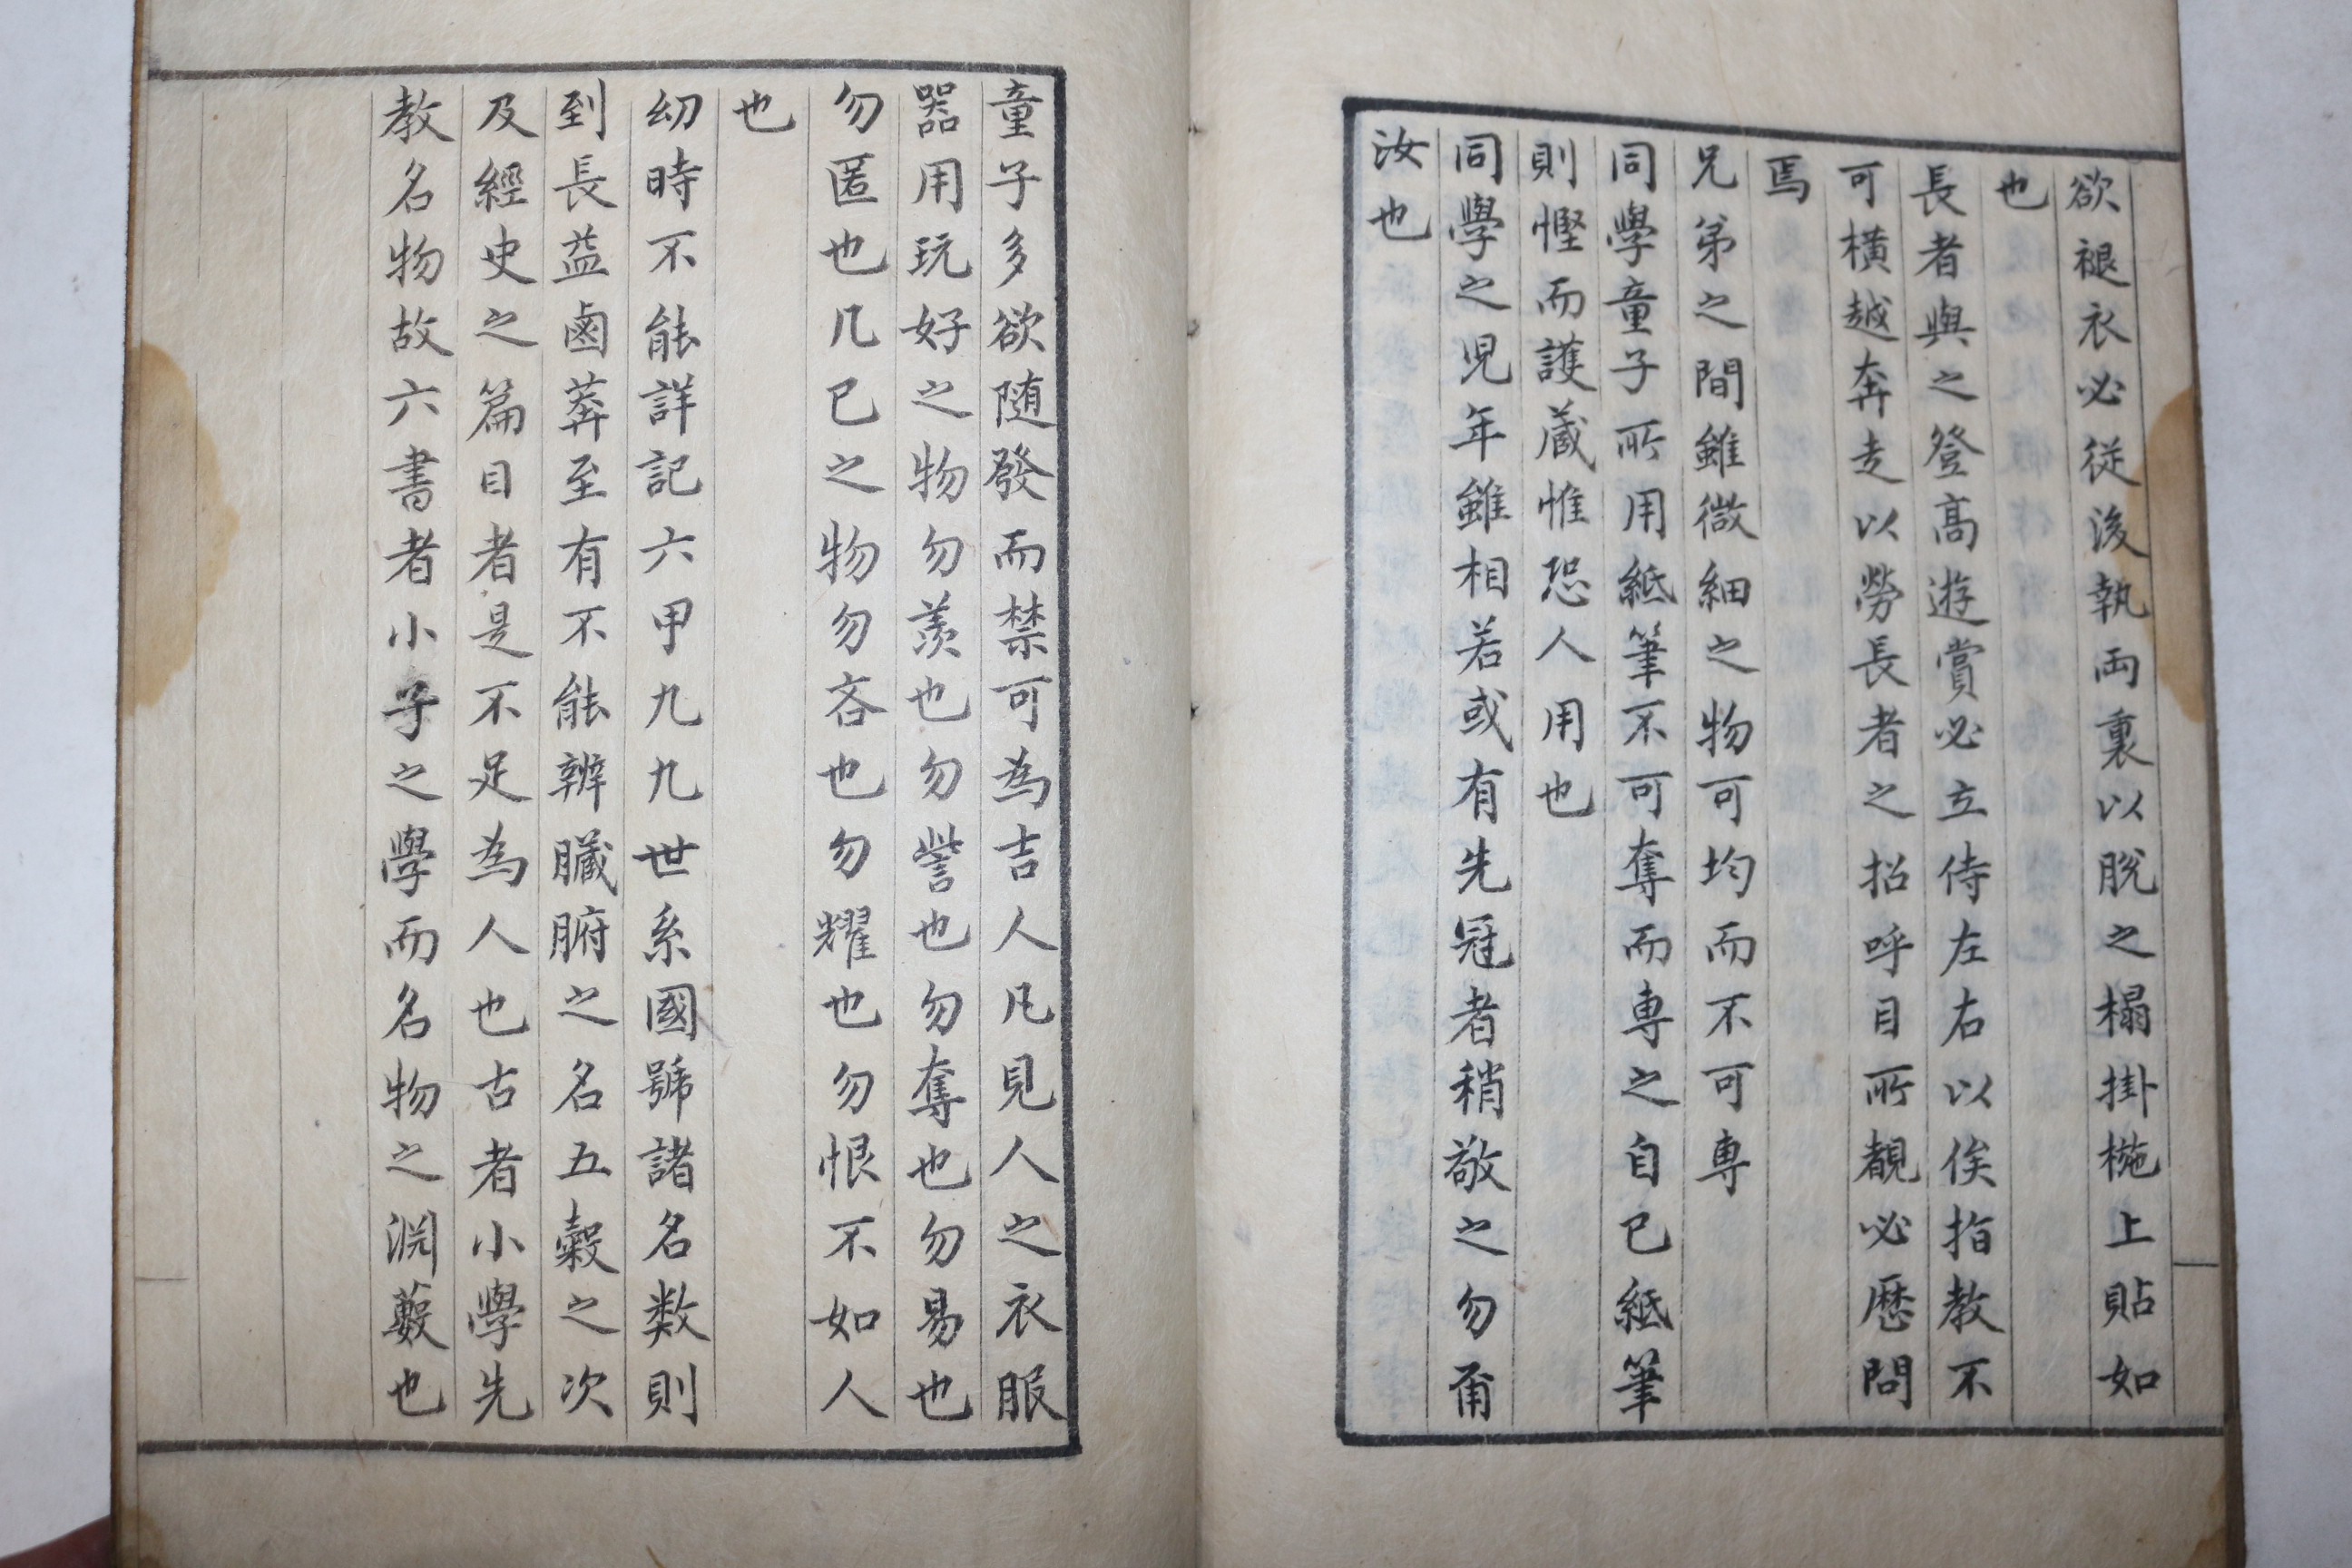 欲褪衣必從後執両裏以脫之榻掛椸上貼如
也
長者與之登高遊賞必立侍左右以俟指教不
可橫越奔走以勞長者之招呼目所覩必歷問
焉
兄弟之間雖微細之物可均而不可專
同學童子所用紙筆不可奪而專之自己紙筆
則慳而護蔵惟恐人用也
同學之児年雖相若或有先冠者稍敬之勿爾
汝也
童子多欲随發而禁可為吉人凡見人之衣服
器用玩好之物勿羡也勿訾也勿奪也勿易也
勿匿也凡己之物勿吝也勿耀也勿恨不如人
也
幼時不能詳記六甲九九世系國號諸名数則
到長益鹵莽至有不能辨臓腑之名五穀之次
及經史之篇目者是不足為人也古者小學先
教名物故六書者小子之學而名物之淵藪也